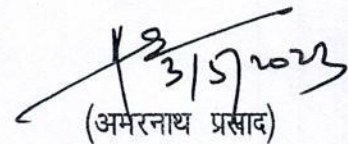 3/5/2023
(अमरनाथ प्रसाद)